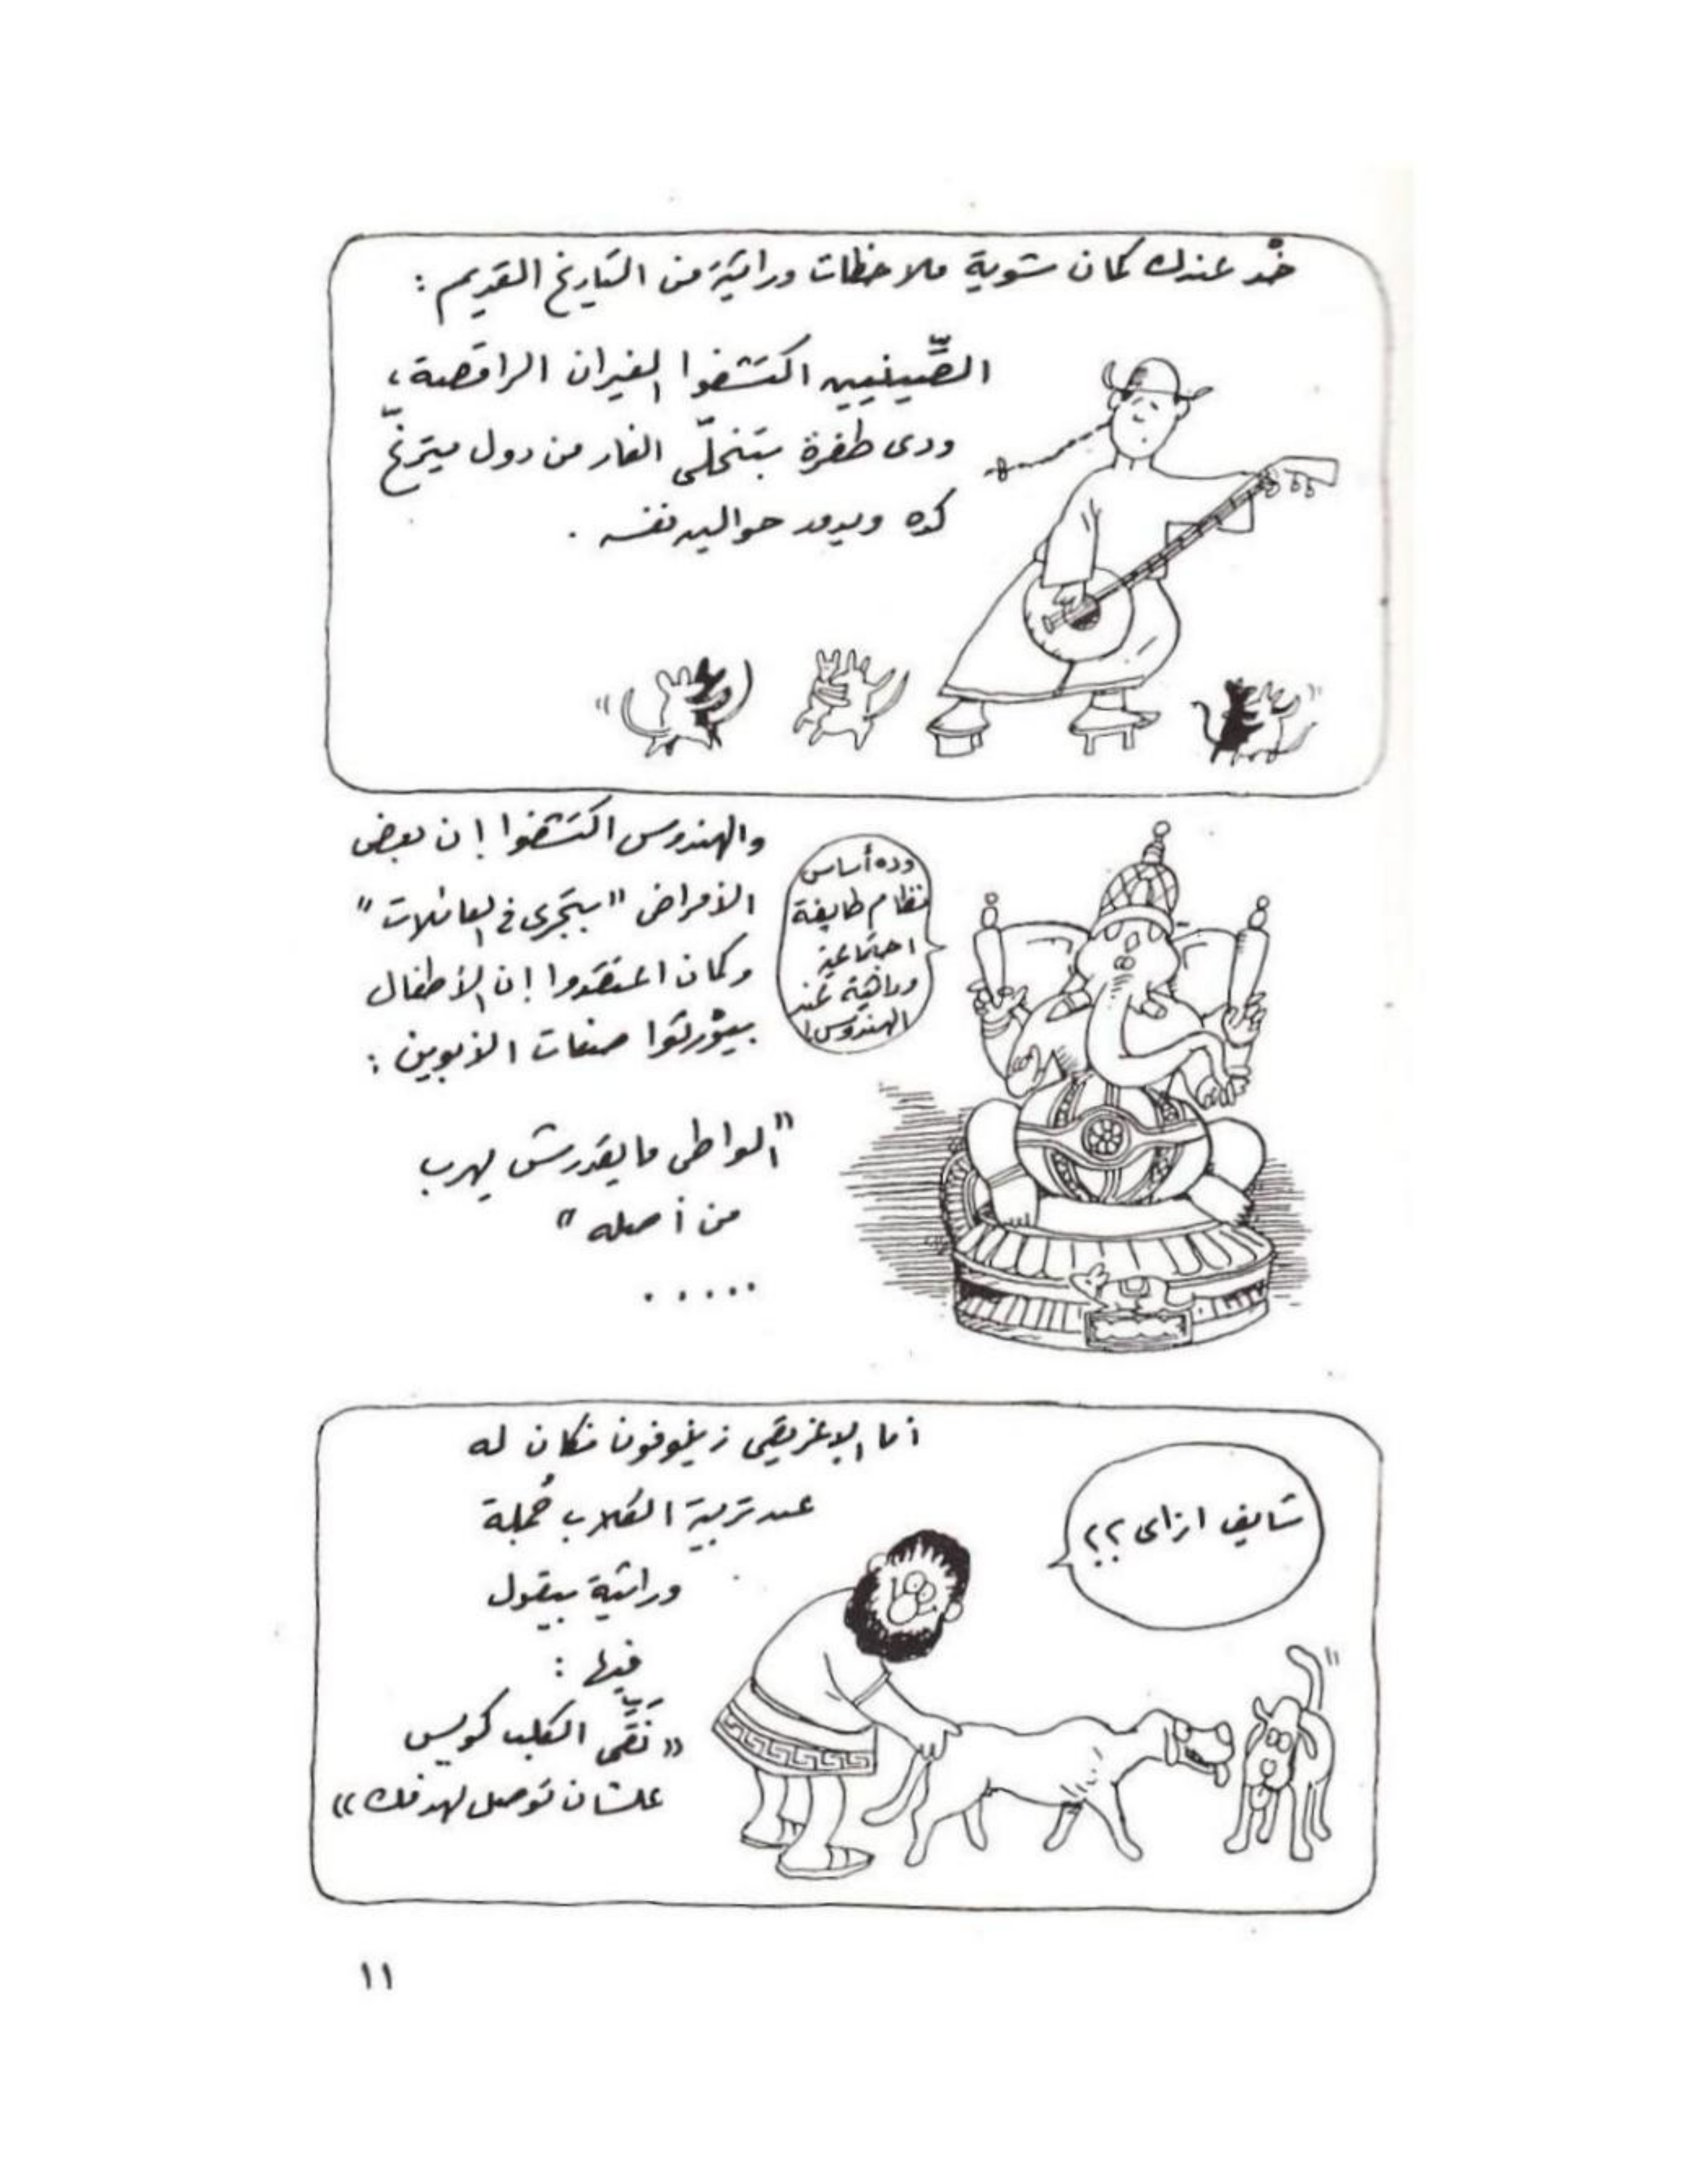 خُد عندك كمان شوية ملاحظات وراثية من التاريخ القديم :
الصِّينيين اكتشفوا الفيران الراقصة،
ودى طفرة بتخلّى الفار من دول ميترنّح
كده ويدور حوالين نفسه .
والهندوس اكتشفوا إن بعض
الأمراض "بتجرى فى العائلات"
وكمان اعتقدوا إن الأطفال
بيوْرثوا صفات الأبوين :
"الواطى مايقدرش يهرب
من أصله"
.....
وده أساس
نظام طايفة
اجتماعية
وراثية عند
الهندوس!
أما الإغريقى زينوفون فكان له
عند تربية الكلاب جُملة
وراثية بيقول
فيها :
«نَقِّى الكلب كويس
علشان توصل لهدفك»
شايف ازاى ؟؟
١١